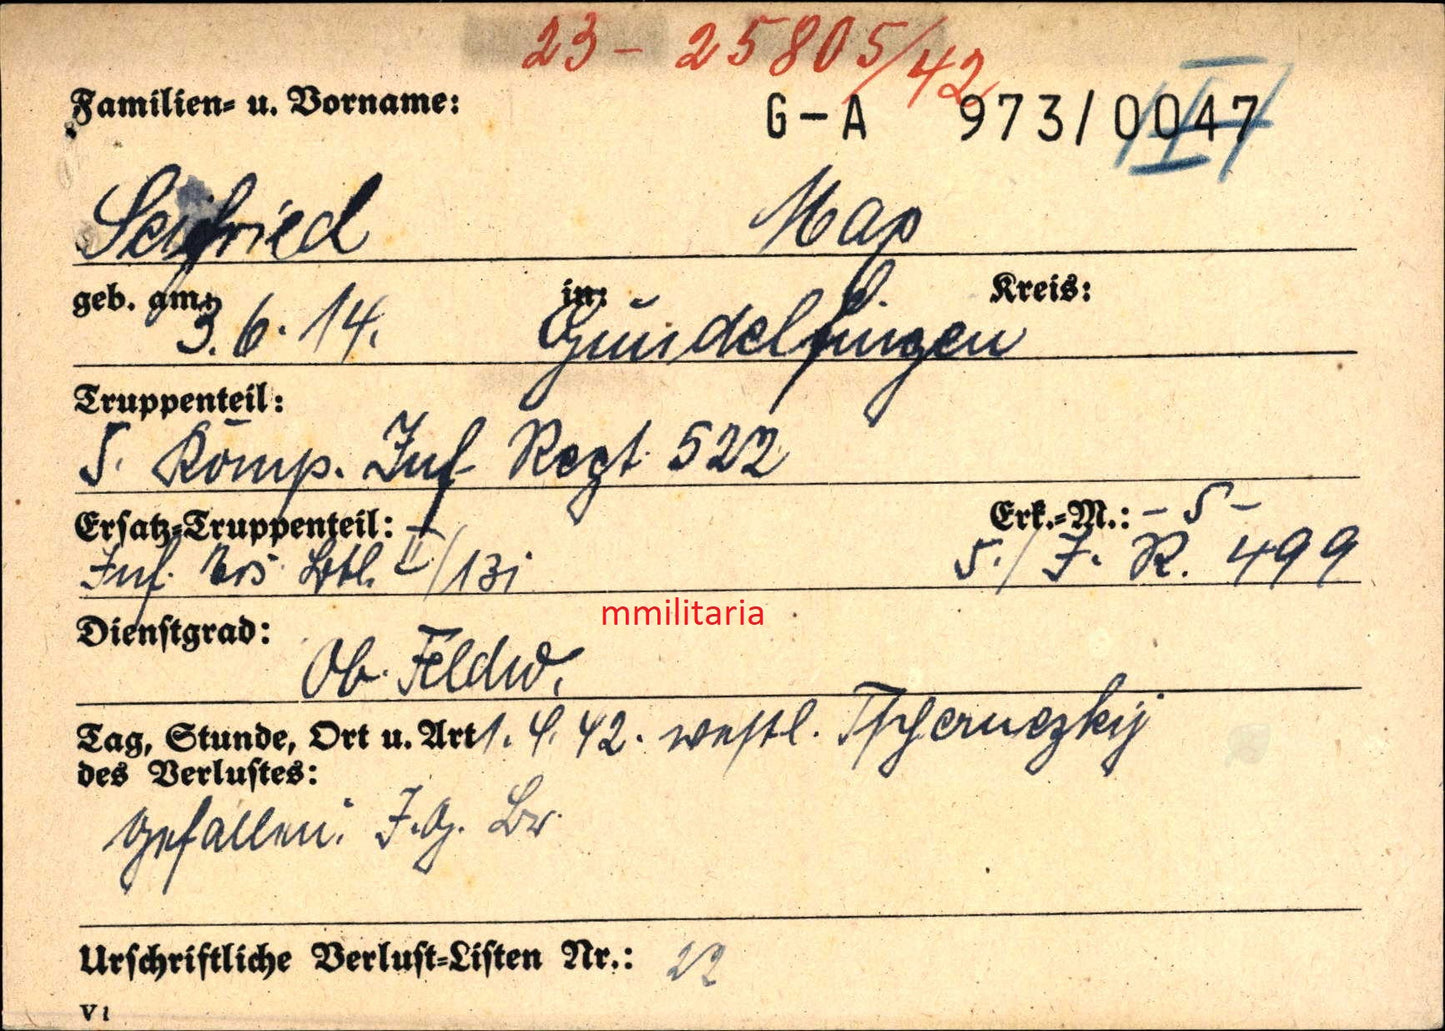 23 - 25805/42
Familien- u. Vorname:
G-A 973/0047
Seifried Max
geb. am: in: Kreis:
3.6.14. Gundelfingen
Truppenteil:
5. Komp. Inf Regt 522
Ersatz-Truppenteil: Erk.-M.: - 5 -
Inf. Ers. Btl. II/131 5./I.R. 499
mmilitaria
Dienstgrad:
Ob. Feldw.
Tag, Stunde, Ort u. Art 1.4.42. westl.
des Verlustes:
gefallen. I.G.
Urschriftliche Verlust-Listen Nr.: 22
V 1